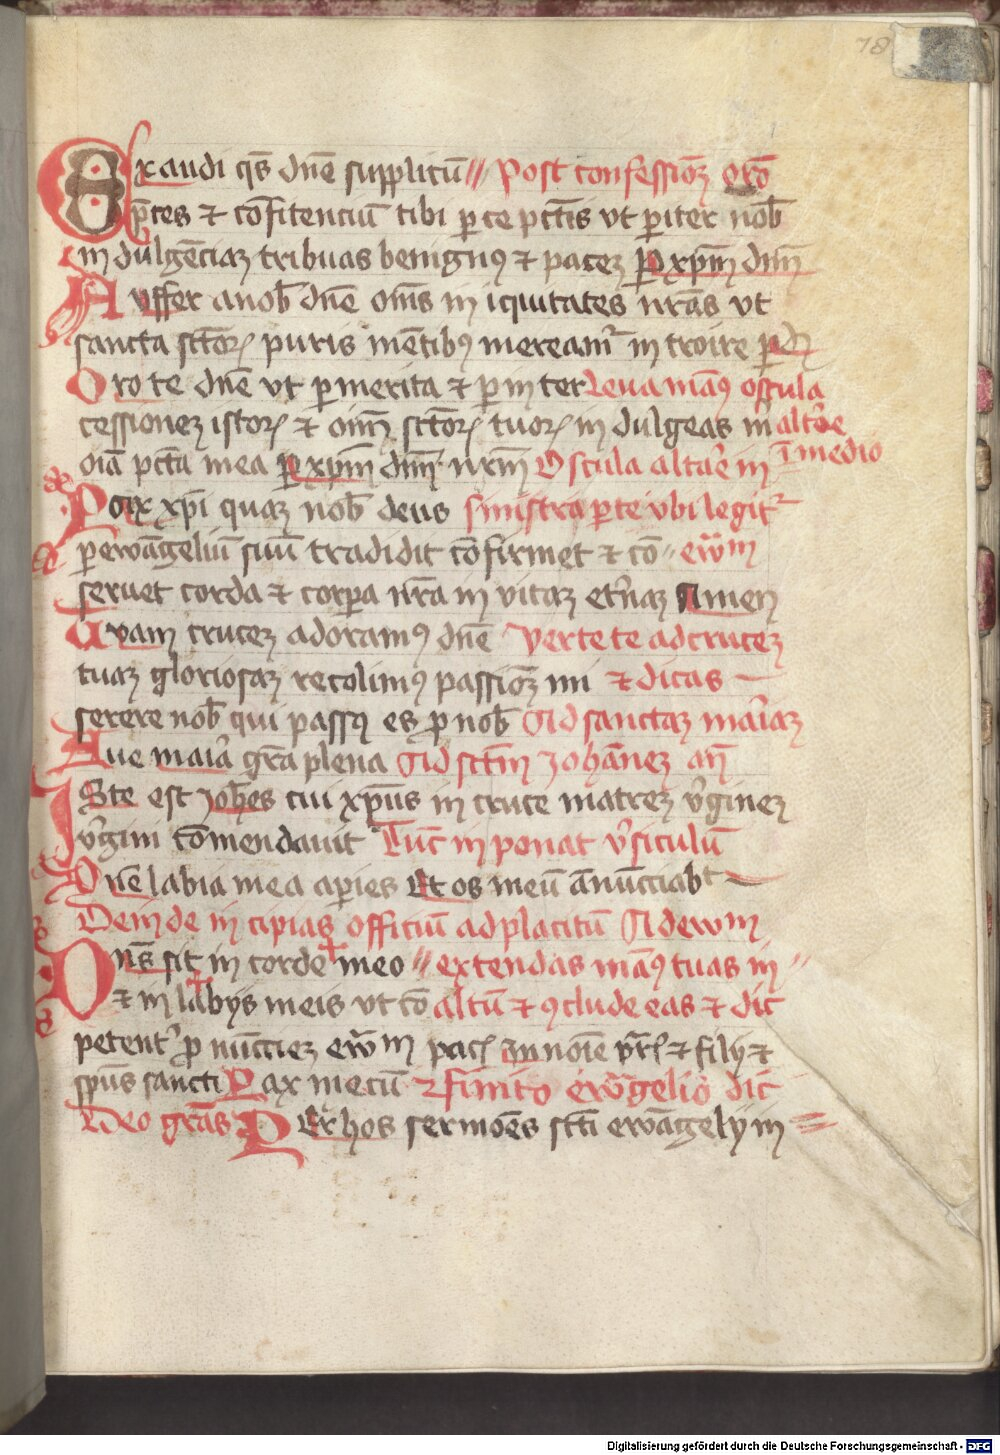 78
Exaudi qs̄ dn̄e supplicū Post confessiōꝫ orō
p̄ces et cōfitenciū tibi parce pctīs vt pariter nob̄
indulgēciaꝫ tribuas benignꝰ et paceꝫ Per xp̄m dnm̄
Auffer a nob̄ dn̄e om̄s iniquitates nr̄as vt
sancta sctōrꝝ puris mētibꝰ mereamur introire per dn̄
Oro te dn̄e vt per merita et per inter Leua manꝰ oscula
cessioneꝫ istorꝝ et oim̄ sctōrꝝ tuorꝝ indulgeas m altare
oīa pctā mea Per xp̄m dnm̄ nrm̄ Oscula altare in ī medio
Pax xpī quaꝫ nob̄ deus sinistra parte vbi legitur
per ewāgeliū suū tradidit cōfirmet et cō ewm
seruet corda et corpora nr̄a in vitaꝫ eternaꝫ Amen
Tuam cruceꝫ adoramꝰ dn̄e Verte te ad cruceꝫ
tuaꝫ gloriosaꝫ recolimꝰ passiōꝫ mi et dicas
serere nob̄ qui passꝰ es pro nob̄ Ad sanctaꝫ mariaꝫ
Aue maria gr̄a plena Ad sctm̄ Johāneꝫ an̄
Iste est Joh̄es cui xp̄us in cruce matreꝫ virgineꝫ
virgini cōmendauit Tūc inponat versiculū
Dn̄e labia mea aperies Et os meū anūcciabt
Deinde incipias officiū ad placitū Ad ewm
Dn̄s sit in corde meo extendas manꝰ tuas in
et in labijs meis vt cō altū et ꝯclude eas et dic
petenter pro nūccieꝫ ewm pacꝭ In noīe pr̄is et filij et
sp̄us sancti Pax mecū et finito ewāgelio dic
Deo grās Per hos sermōes sctī ewāgelij in
Digitalisierung gefördert durch die Deutsche Forschungsgemeinschaft - DFG